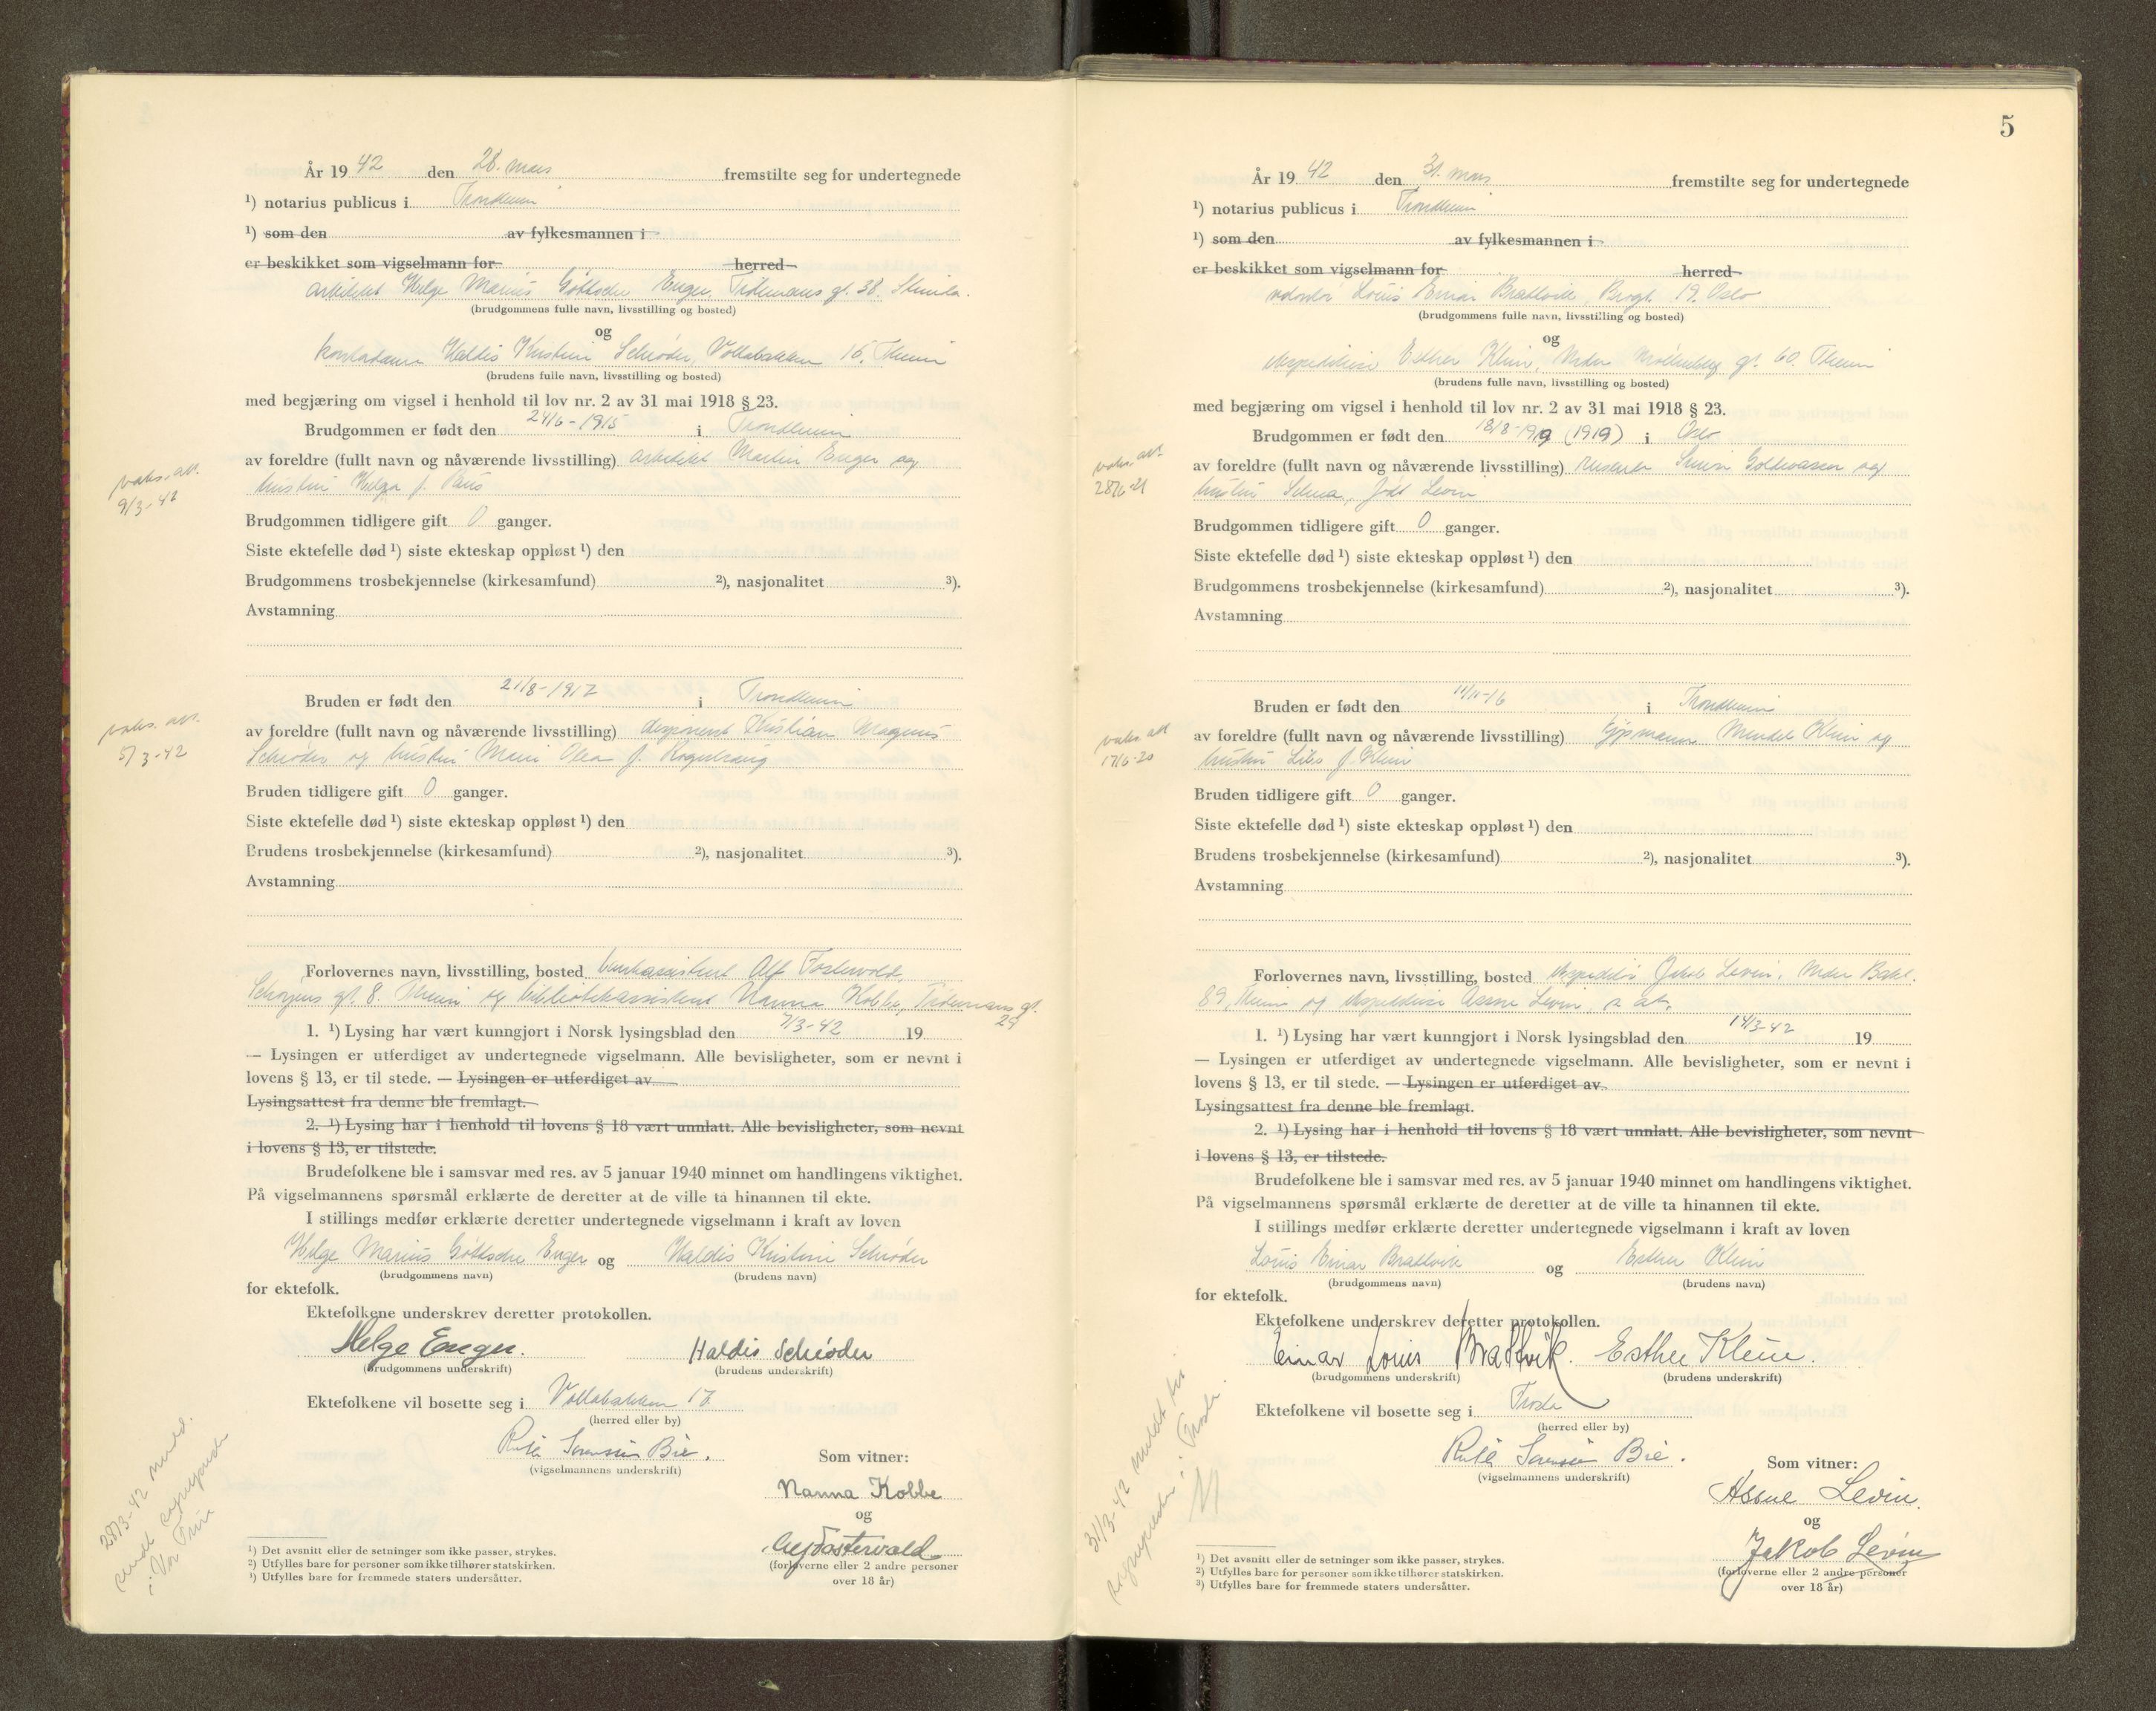 År 19 42 den 28. mars fremstilte seg for undertegnede
¹) notarius publicus i Trondheim
¹) som den av fylkesmannen i
er beskikket som vigselmann for herred
arkitekt Helge Marius Göttsche Enger, Tidemans gt. 38.
(brudgommens fulle navn, livsstilling og bosted)
og
kontordame Haldis Kristine Schrøder, Vollabakken 16, Theim
(brudens fulle navn, livsstilling og bosted)
med begjæring om vigsel i henhold til lov nr. 2 av 31 mai 1918 § 23.
Brudgommen er født den 24/6-1915 i Trondheim
av foreldre (fullt navn og nåværende livsstilling) arkitekt Martin Enger og
hustru Helga f.
vaks. att.
9/3-42
Brudgommen tidligere gift 0 ganger.
Siste ektefelle død ¹) siste ekteskap oppløst ¹) den
Brudgommens trosbekjennelse (kirkesamfund) ²), nasjonalitet ³).
Avstamning
Bruden er født den 21/8-1917 i Trondheim
av foreldre (fullt navn og nåværende livsstilling) disponent Kristian Magnus
Schrøder og hustru Olea f.
vaks. att.
5/3-42
Bruden tidligere gift 0 ganger.
Siste ektefelle død ¹) siste ekteskap oppløst ¹) den
Brudens trosbekjennelse (kirkesamfund) ²), nasjonalitet ³).
Avstamning
Forlovernes navn, livsstilling, bosted Alf Fostervold,
gt. 8. Theim og bibliotekassistent Nanna Kobbe, Tidemans gt.
29
1. ¹) Lysing har vært kunngjort i Norsk lysingsblad den 7/3-42 19
— Lysingen er utferdiget av undertegnede vigselmann. Alle bevisligheter, som er nevnt i
lovens § 13, er til stede. — Lysingen er utferdiget av
Lysingsattest fra denne ble fremlagt.
2. ¹) Lysing har i henhold til lovens § 18 vært unnlatt. Alle bevisligheter, som nevnt
i lovens § 13, er tilstede.
Brudefolkene ble i samsvar med res. av 5 januar 1940 minnet om handlingens viktighet.
På vigselmannens spørsmål erklærte de deretter at de ville ta hinannen til ekte.
I stillings medfør erklærte deretter undertegnede vigselmann i kraft av loven
Helge Marius Göttsche Enger og Haldis Kristine Schrøder
(brudgommens navn) (brudens navn)
for ektefolk.
Ektefolkene underskrev deretter protokollen.
Helge Enger. Haldis Schrøder
(brudgommens underskrift) (brudens underskrift)
Ektefolkene vil bosette seg i Vollabakken 17
(herred eller by)
Sorensen Bie.
(vigselmannens underskrift)
Som vitner:
Nanna Kobbe
og
Alf Fostervold
(forloverne eller 2 andre personer
over 18 år)
28/3-42 meld.
sendt sogneprest
i Vår Frue
¹) Det avsnitt eller de setninger som ikke passer, strykes.
²) Utfylles bare for personer som ikke tilhører statskirken.
³) Utfylles bare for fremmede staters undersåtter.
5
År 19 42 den 31. mars fremstilte seg for undertegnede
¹) notarius publicus i Trondheim
¹) som den av fylkesmannen i
er beskikket som vigselmann for herred
Louis Einar Brattvik, Brogt. 19. Oslo
(brudgommens fulle navn, livsstilling og bosted)
og
ekspeditrise Esther Klein, Nedre Møllenberg gt. 60. Theim
(brudens fulle navn, livsstilling og bosted)
med begjæring om vigsel i henhold til lov nr. 2 av 31 mai 1918 § 23.
Brudgommen er født den 18/8-1919 (1919) i Oslo
av foreldre (fullt navn og nåværende livsstilling) og
hustru Selma, født Levin
vaks. att.
Brudgommen tidligere gift 0 ganger.
Siste ektefelle død ¹) siste ekteskap oppløst ¹) den
Brudgommens trosbekjennelse (kirkesamfund) ²), nasjonalitet ³).
Avstamning
Bruden er født den 11/11-16 i Trondheim
av foreldre (fullt navn og nåværende livsstilling) kjøpmann Mendel Klein og
hustru f. Klein
vaks att
17/6-20
Bruden tidligere gift 0 ganger.
Siste ektefelle død ¹) siste ekteskap oppløst ¹) den
Brudens trosbekjennelse (kirkesamfund) ²), nasjonalitet ³).
Avstamning
Forlovernes navn, livsstilling, bosted ekspeditør Jakob Levin, Nedre Bakl.
89, Theim og ekspeditrise Assne Levin, s. st.
1. ¹) Lysing har vært kunngjort i Norsk lysingsblad den 14/3-42 19
— Lysingen er utferdiget av undertegnede vigselmann. Alle bevisligheter, som er nevnt i
lovens § 13, er til stede. — Lysingen er utferdiget av
Lysingsattest fra denne ble fremlagt.
2. ¹) Lysing har i henhold til lovens § 18 vært unnlatt. Alle bevisligheter, som nevnt
i lovens § 13, er tilstede.
Brudefolkene ble i samsvar med res. av 5 januar 1940 minnet om handlingens viktighet.
På vigselmannens spørsmål erklærte de deretter at de ville ta hinannen til ekte.
I stillings medfør erklærte deretter undertegnede vigselmann i kraft av loven
Louis Einar Brattvik og Esther Klein
(brudgommens navn) (brudens navn)
for ektefolk.
Ektefolkene underskrev deretter protokollen.
Einar Louis Brattvik. Esther Klein.
(brudgommens underskrift) (brudens underskrift)
Ektefolkene vil bosette seg i
(herred eller by)
Sorensen Bie.
(vigselmannens underskrift)
Som vitner:
Assne Levin.
og
Jakob Levin
(forloverne eller 2 andre personer
over 18 år)
31/3-42 meldt til
¹) Det avsnitt eller de setninger som ikke passer, strykes.
²) Utfylles bare for personer som ikke tilhører statskirken.
³) Utfylles bare for fremmede staters undersåtter.